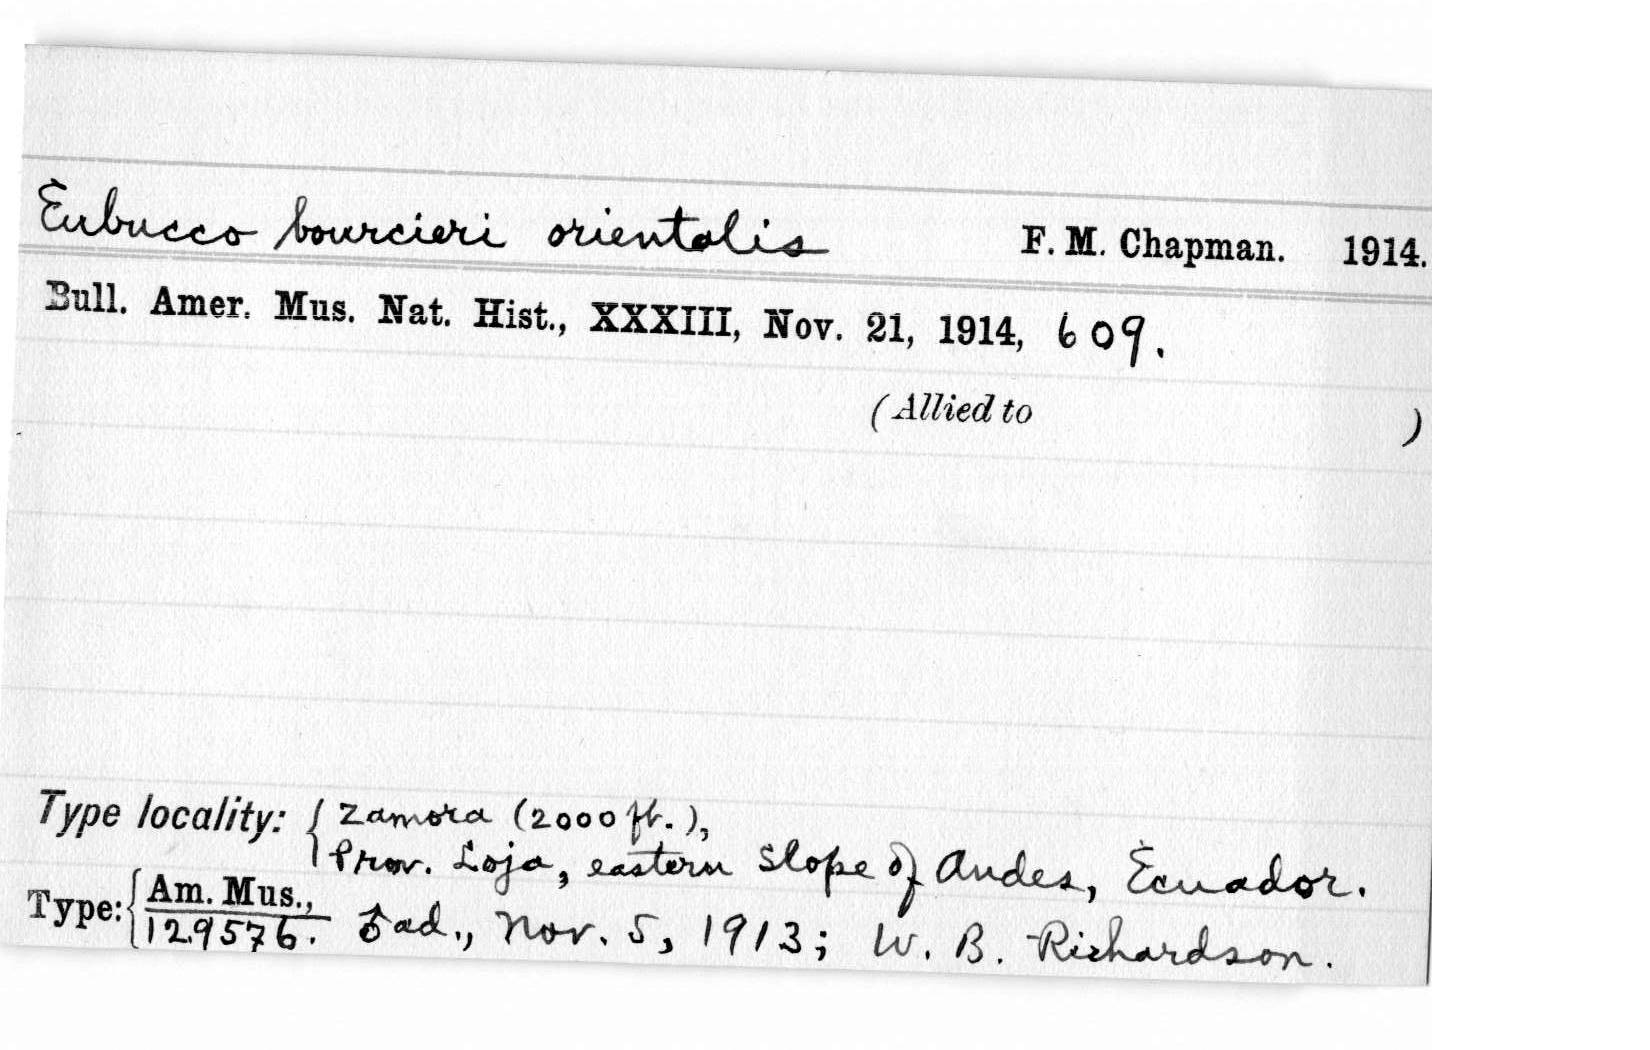 Eubucco bourcieri orientalis F. M. Chapman. 1914.
Bull. Amer. Mus. Nat. Hist., XXXIII, Nov. 21, 1914, 609.
(Allied to )
Type locality: { Zamora (2000 ft.),
Prov. Loja, eastern slope of Andes, Ecuador.
Type: { Am. Mus.,
129576. ♂ ad., Nov. 5, 1913; W. B. Richardson.